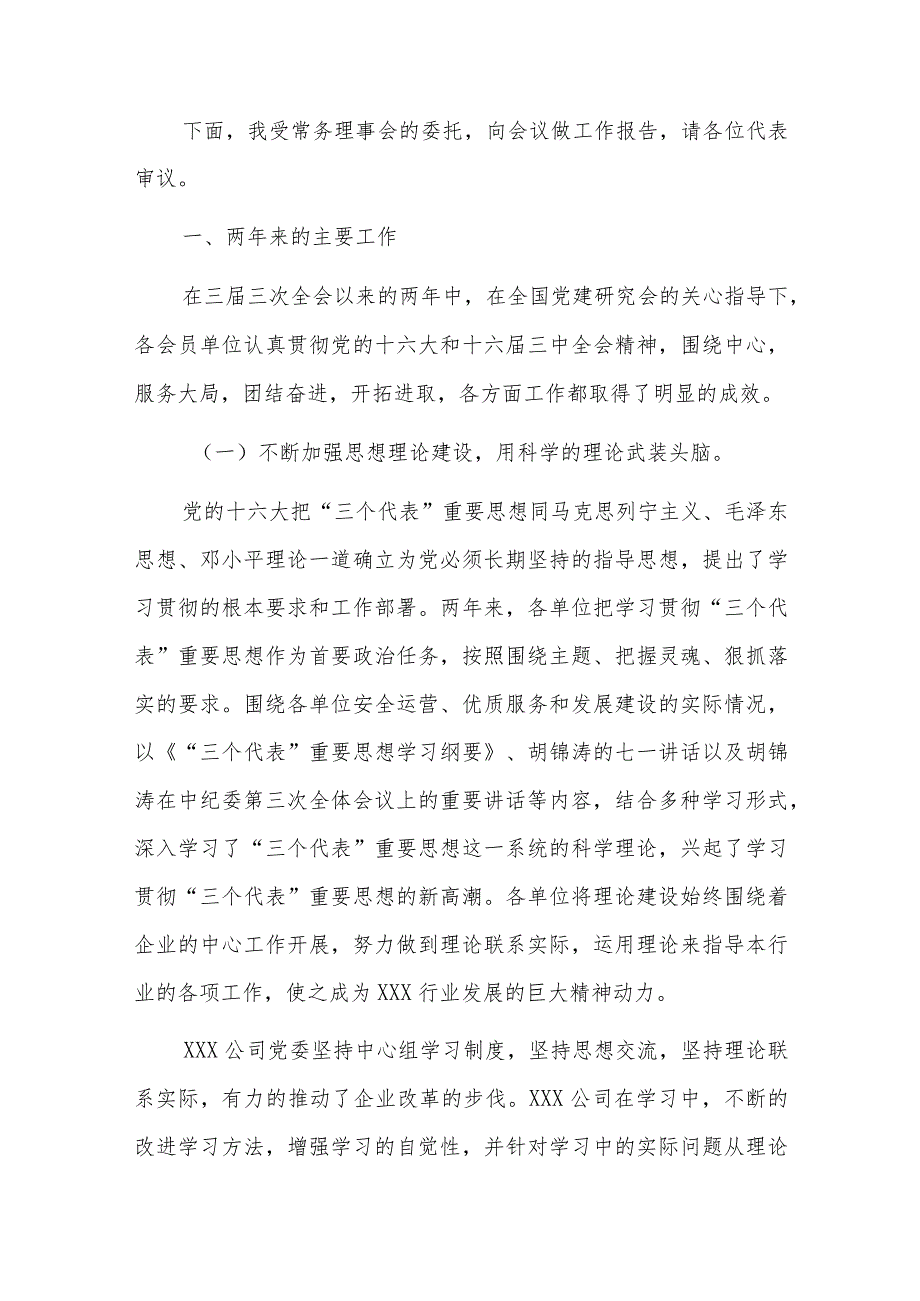 下面，我受常务理事会的委托，向会议做工作报告，请各位代表
审议。
一、两年来的主要工作
在三届三次全会以来的两年中，在全国党建研究会的关心指导下，
各会员单位认真贯彻党的十六大和十六届三中全会精神，围绕中心，
服务大局，团结奋进，开拓进取，各方面工作都取得了明显的成效。
（一）不断加强思想理论建设，用科学的理论武装头脑。
党的十六大把“三个代表”重要思想同马克思列宁主义、毛泽东
思想、邓小平理论一道确立为党必须长期坚持的指导思想，提出了学
习贯彻的根本要求和工作部署。两年来，各单位把学习贯彻“三个代
表”重要思想作为首要政治任务，按照围绕主题、把握灵魂、狠抓落
实的要求。围绕各单位安全运营、优质服务和发展建设的实际情况，
以《“三个代表”重要思想学习纲要》、胡锦涛的七一讲话以及胡锦
涛在中纪委第三次全体会议上的重要讲话等内容，结合多种学习形式，
深入学习了“三个代表”重要思想这一系统的科学理论，兴起了学习
贯彻“三个代表”重要思想的新高潮。各单位将理论建设始终围绕着
企业的中心工作开展，努力做到理论联系实际，运用理论来指导本行
业的各项工作，使之成为 XXX 行业发展的巨大精神动力。
XXX 公司党委坚持中心组学习制度，坚持思想交流，坚持理论联
系实际，有力的推动了企业改革的步伐。XXX 公司在学习中，不断的
改进学习方法，增强学习的自觉性，并针对学习中的实际问题从理论